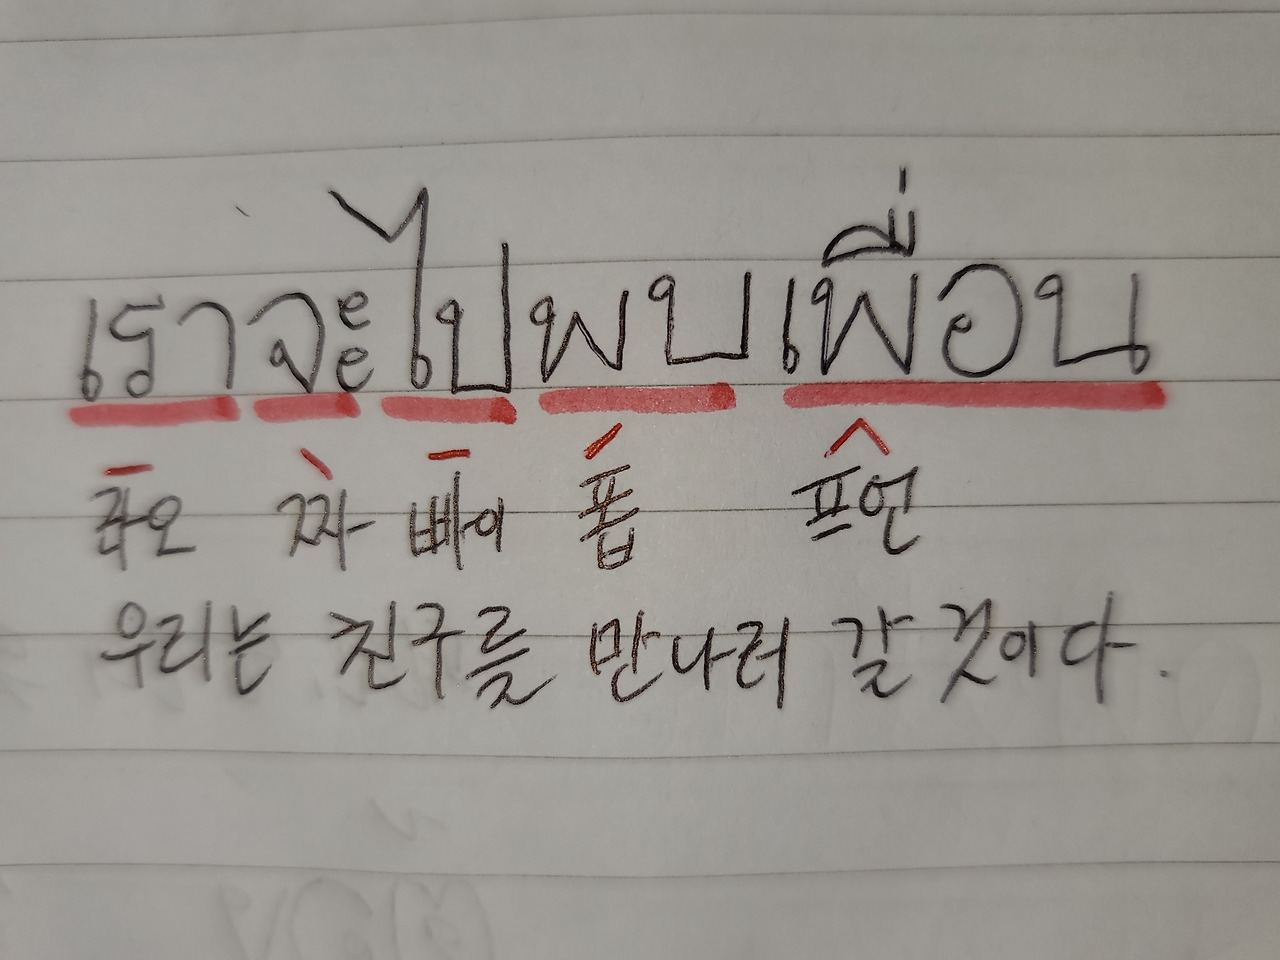 เราจะไปพบเพื่อน
라오 짜 빠이 폽 프언
우리는 친구를 만나러 갈 것이다.